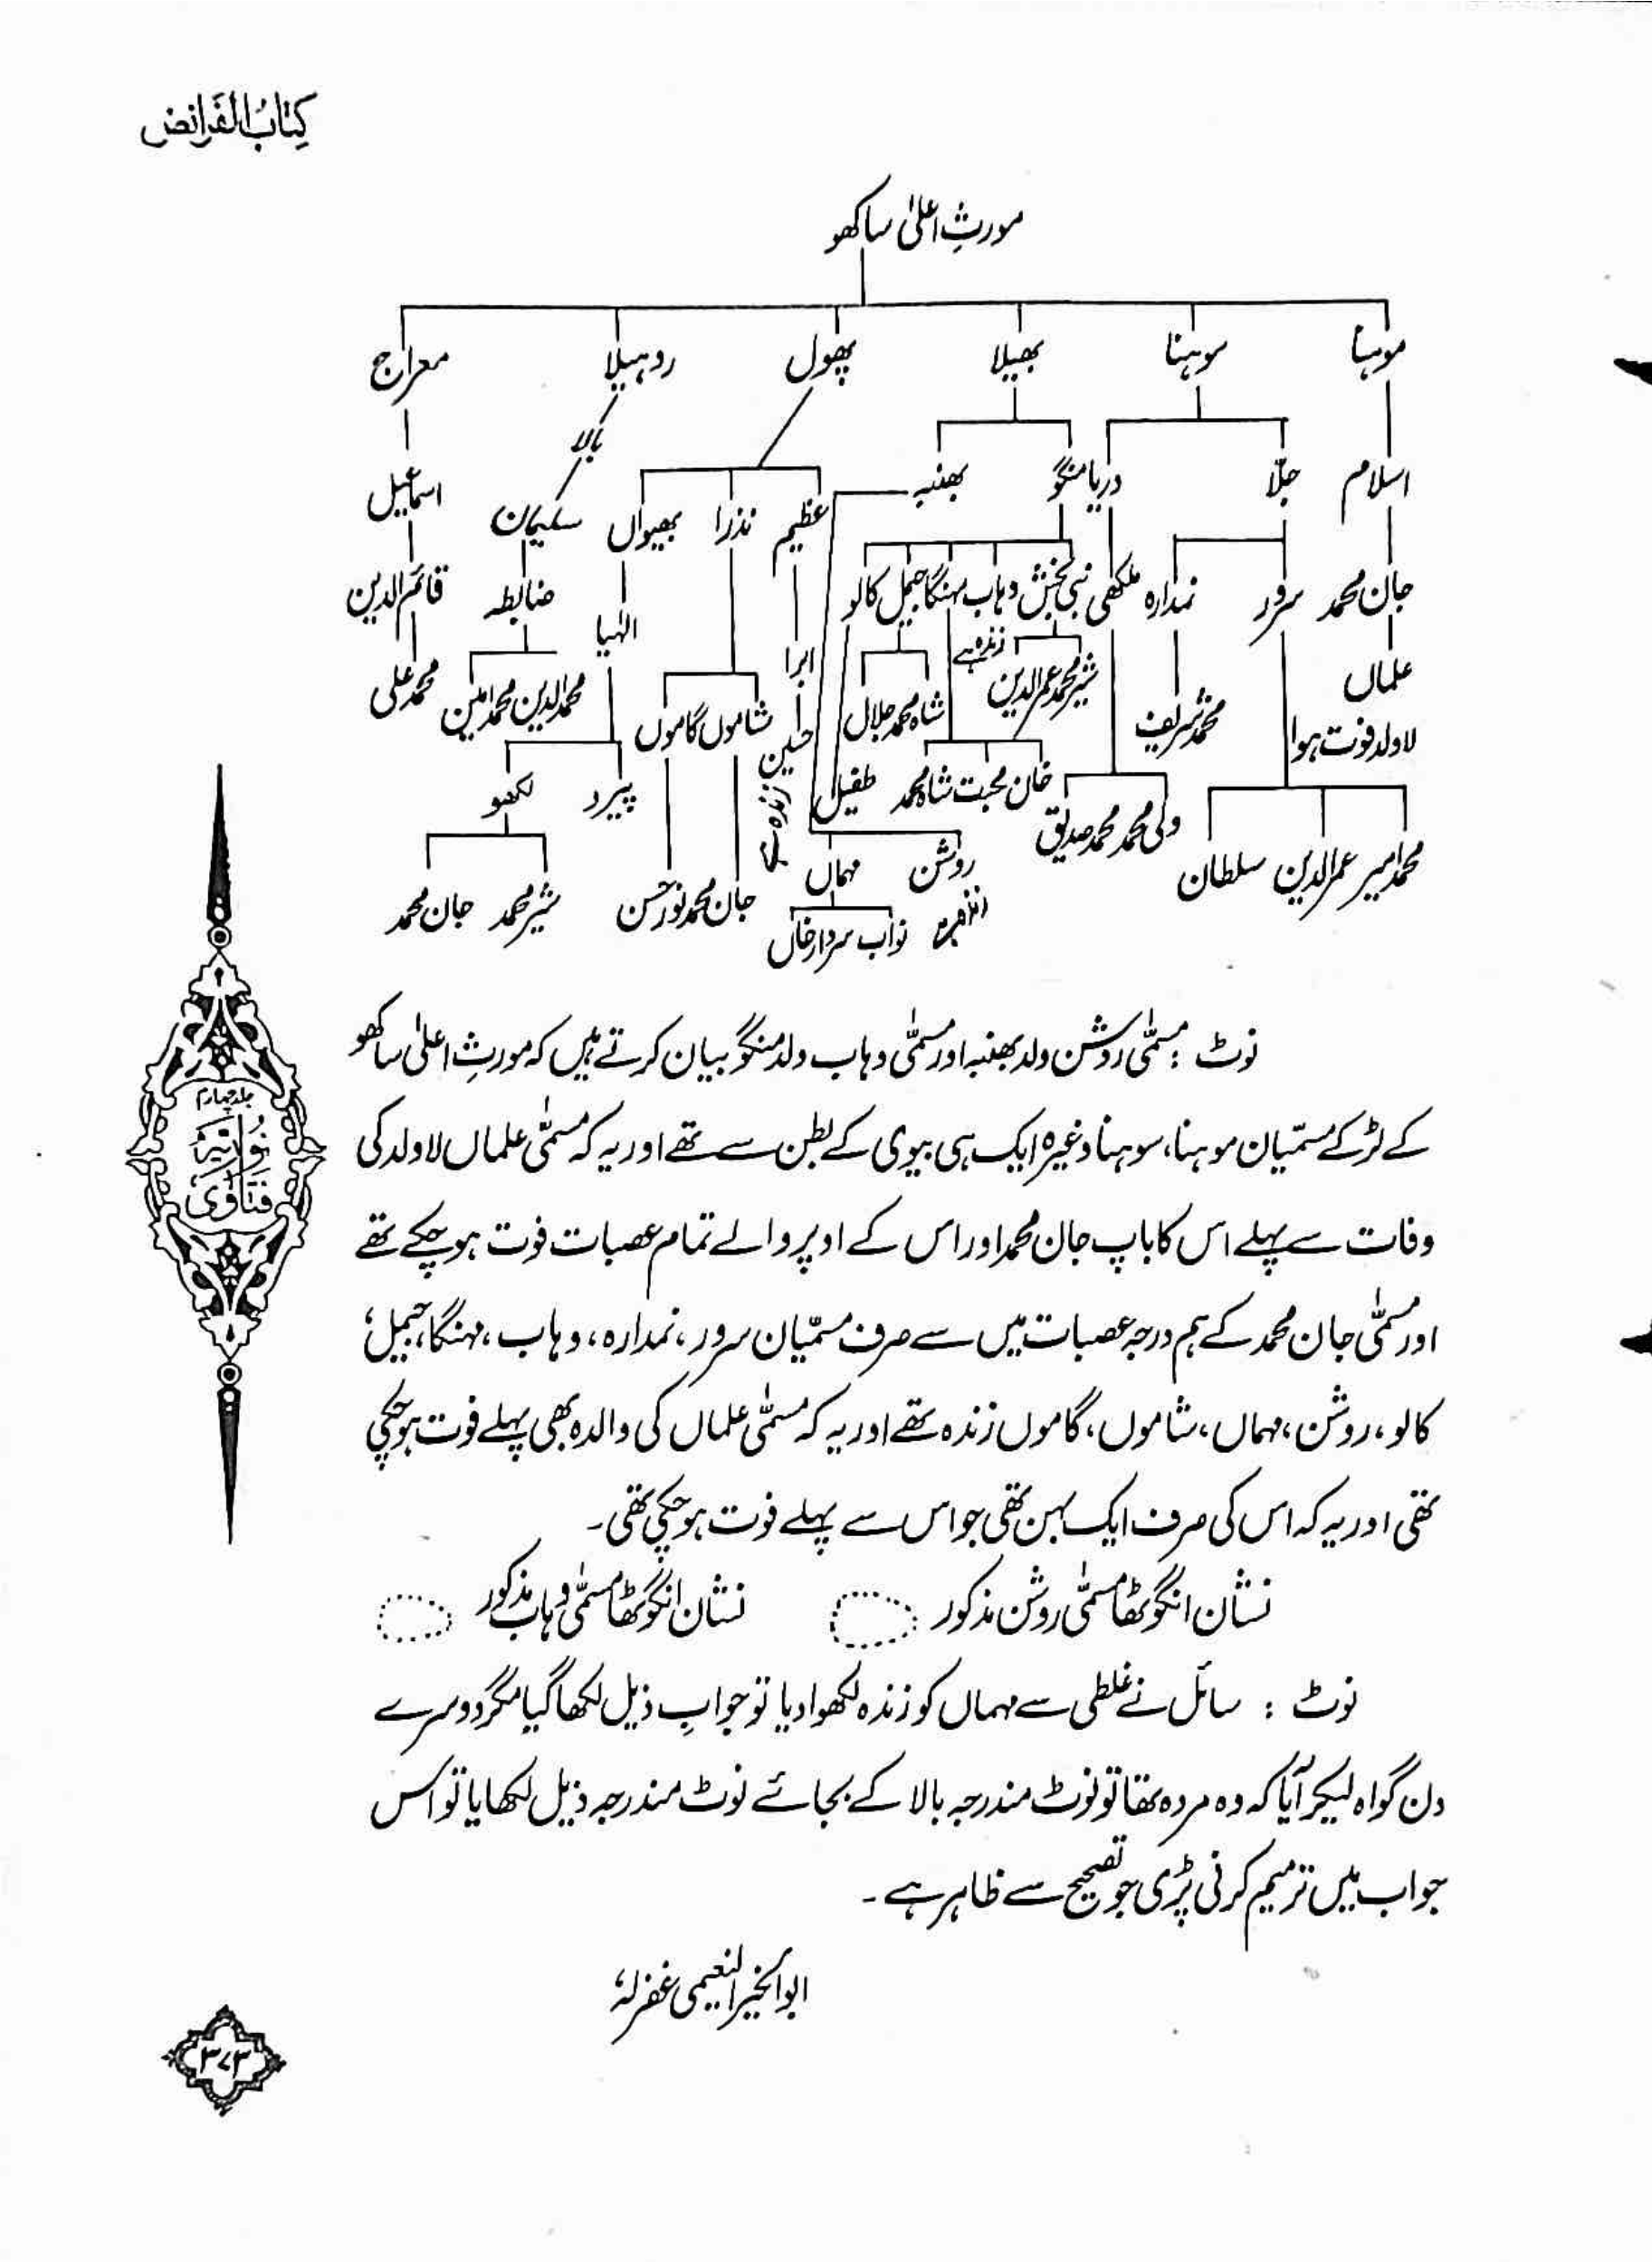 کتاب الفرائض
مورثِ اعلیٰ ساکھو
موہنا سوہنا بھیلا پھول روہیلا معراج
بالا
اسلام جلّا دریا منگو بھنبہ عظیم نذرا بھیواں سلیمان اسماعیل
جان محمد سرور نمدارہ ملکھی نبی بخش وہاب مہنگا جمیل کالو ابرا الٰہیا ضابطہ قائم الدین
زندہ ہے
علماں لاولد فوت ہوا محمد شریف شیر محمد عمر الدین شاہ محمد جلال حسین زندہ ہے شاموں گاموں محمد الدین محمد امین محمد علی
محمد امیر عمر الدین سلطان ولی محمد محمد صدیق خان محبت شاہ محمد طفیل پیرد لکھو
روشن مہماں
زندہ ہے نواب سردار خاں جان محمد نور حسن شیر محمد جان محمد
نوٹ : مسمّٰی روشن ولد بھنبہ اور مسمّٰی وہاب ولد منگو بیان کرتے ہیں کہ مورثِ اعلیٰ ساکھو
کے لڑکے مسمّیان موہنا، سوہنا وغیرہ ایک ہی بیوی کے بطن سے تھے اور یہ کہ مسمّٰی علماں لاولد کی
وفات سے پہلے اس کا باپ جان محمد اور اس کے اوپر والے تمام عصبات فوت ہو چکے تھے
اور مسمّٰی جان محمد کے ہم درجہ عصبات میں سے صرف مسمّیان سرور، نمدارہ، وہاب، مہنگا، جمیل،
کالو، روشن، مہماں، شاموں، گاموں زندہ تھے اور یہ کہ مسمّٰی علماں کی والدہ بھی پہلے فوت ہو چکی
تھی اور یہ کہ اس کی صرف ایک بہن تھی جو اس سے پہلے فوت ہو چکی تھی۔
نشان انگوٹھا مسمّٰی روشن مذکور نشان انگوٹھا مسمّٰی وہاب مذکور
نوٹ : سائل نے غلطی سے مہماں کو زندہ لکھوا دیا تو جوابِ ذیل لکھا گیا مگر دوسرے
دن گواہ لیکر آیا کہ وہ مردہ تھا تو نوٹ مندرجہ بالا کے بجائے نوٹ مندرجہ ذیل لکھایا تو اس
جواب میں ترمیم کرنی پڑی جو تصحیح سے ظاہر ہے۔
ابوالخیر النعیمی غفرلہٗ
جلد چہارم
فتاویٰ نوریہ
۳۷۳